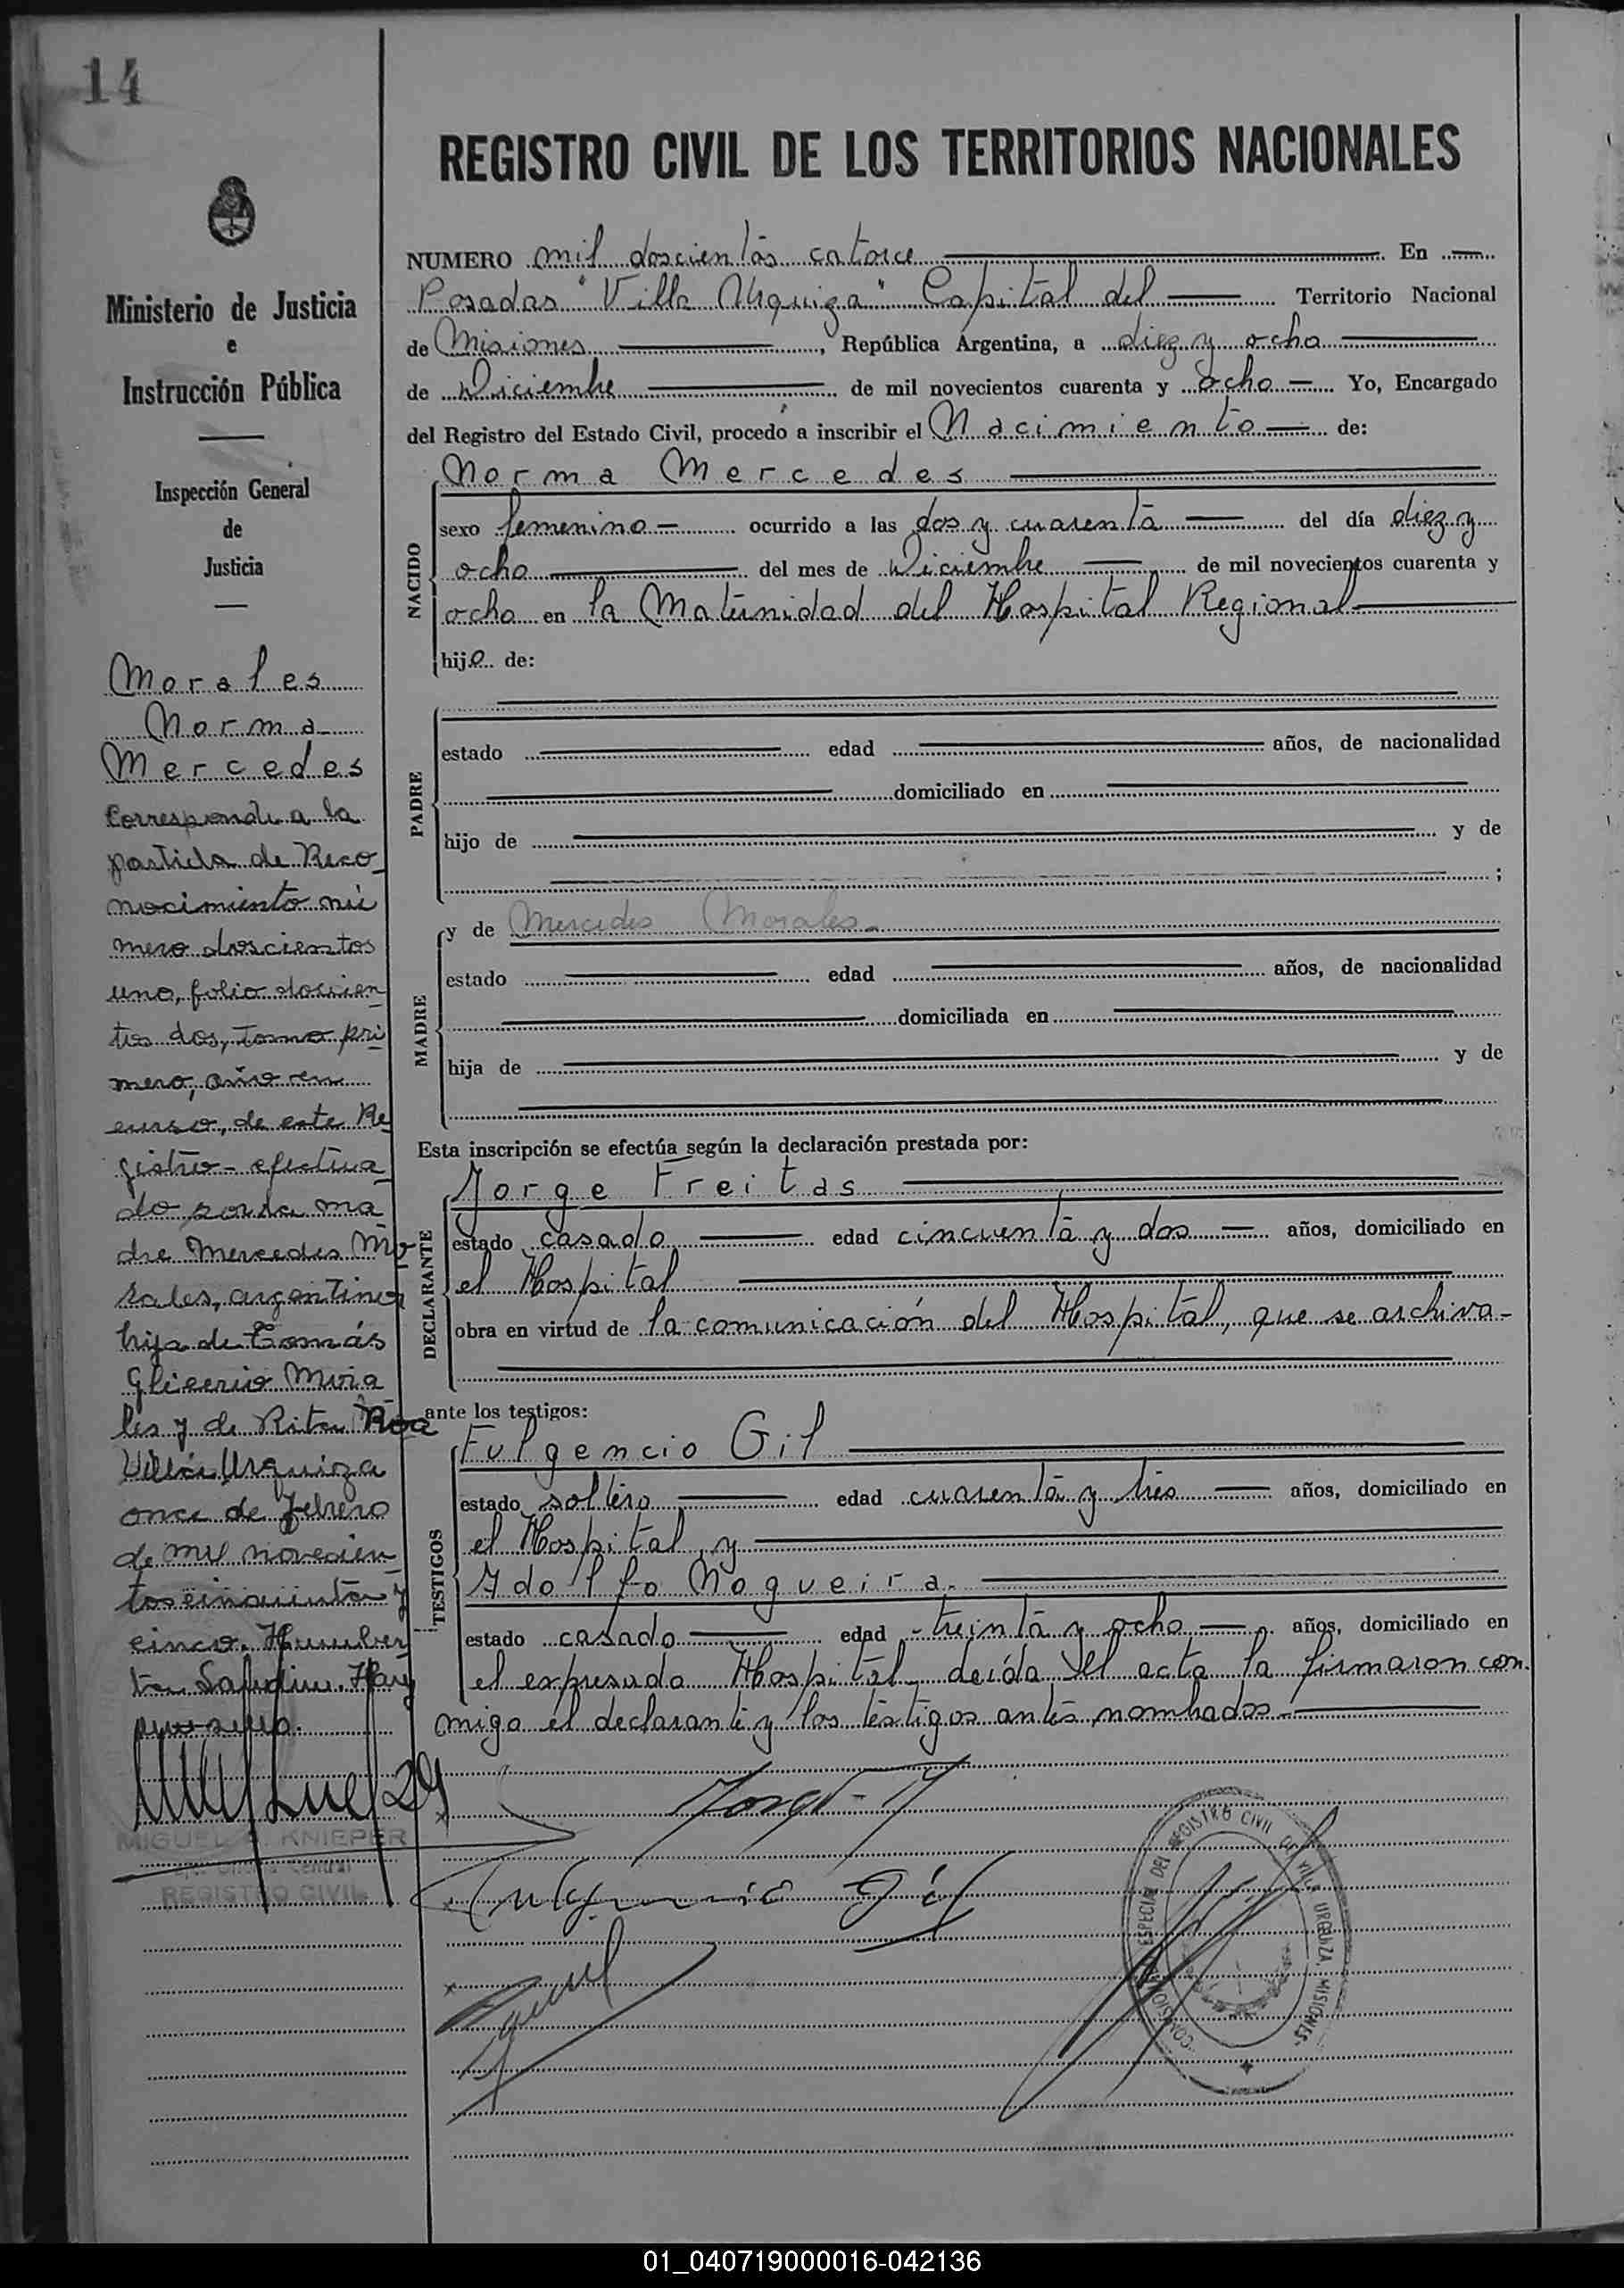 14
Ministerio de Justicia
e
Instrucción Pública
Inspección General
de
Justicia
Morales
Norma
Mercedes
Corresponde a la
partida de Reco
nocimiento nú
mero doscientos
uno, folio doscien
tos dos, tomo pri
mero, año en
curso, de este Re
gistro - efectua
do por la ma
dre Mercedes Mo
rales, argentina
hija de Tomás
Glicerio Mora
les y de Rita Roa
Villa Urquiza
once de Febrero
de mil novecien
tos cincuenta y
cinco. Humber
to
MIGUEL KNIEPER
Central
REGISTRO CIVIL
REGISTRO CIVIL DE LOS TERRITORIOS NACIONALES
NUMERO mil doscientos catorce En
Posadas "Villa Urquiza" Capital del Territorio Nacional
de Misiones, República Argentina, a diez y ocho
de Diciembre de mil novecientos cuarenta y ocho Yo, Encargado
del Registro del Estado Civil, procedo a inscribir el Nacimiento de:
NACIDO
Norma Mercedes
sexo femenino ocurrido a las dos y cuarenta del día diez y
ocho del mes de Diciembre de mil novecientos cuarenta y
ocho en la Maternidad del Hospital Regional
hijo de:
PADRE
estado edad años, de nacionalidad
domiciliado en
hijo de y de
;
MADRE
y de Mercedes Morales
estado edad años, de nacionalidad
domiciliada en
hija de y de
Esta inscripción se efectúa según la declaración prestada por:
DECLARANTE
Jorge Freitas
estado casado edad cincuenta y dos años, domiciliado en
el Hospital
obra en virtud de la comunicación del Hospital, que se archiva-
ante los testigos:
TESTIGOS
Fulgencio Gil
estado soltero edad cuarenta y tres años, domiciliado en
el Hospital, y
Idolfo Nogueira.
estado casado edad treinta y ocho años, domiciliado en
el expresado Hospital leída el acta la firmaron con
migo el declarante y los testigos antes nombrados.-
Fulgencio Gil
ESPECIAL DEL REGISTRO CIVIL DE VILLA URQUIZA. MISIONES
01_040719000016-042136